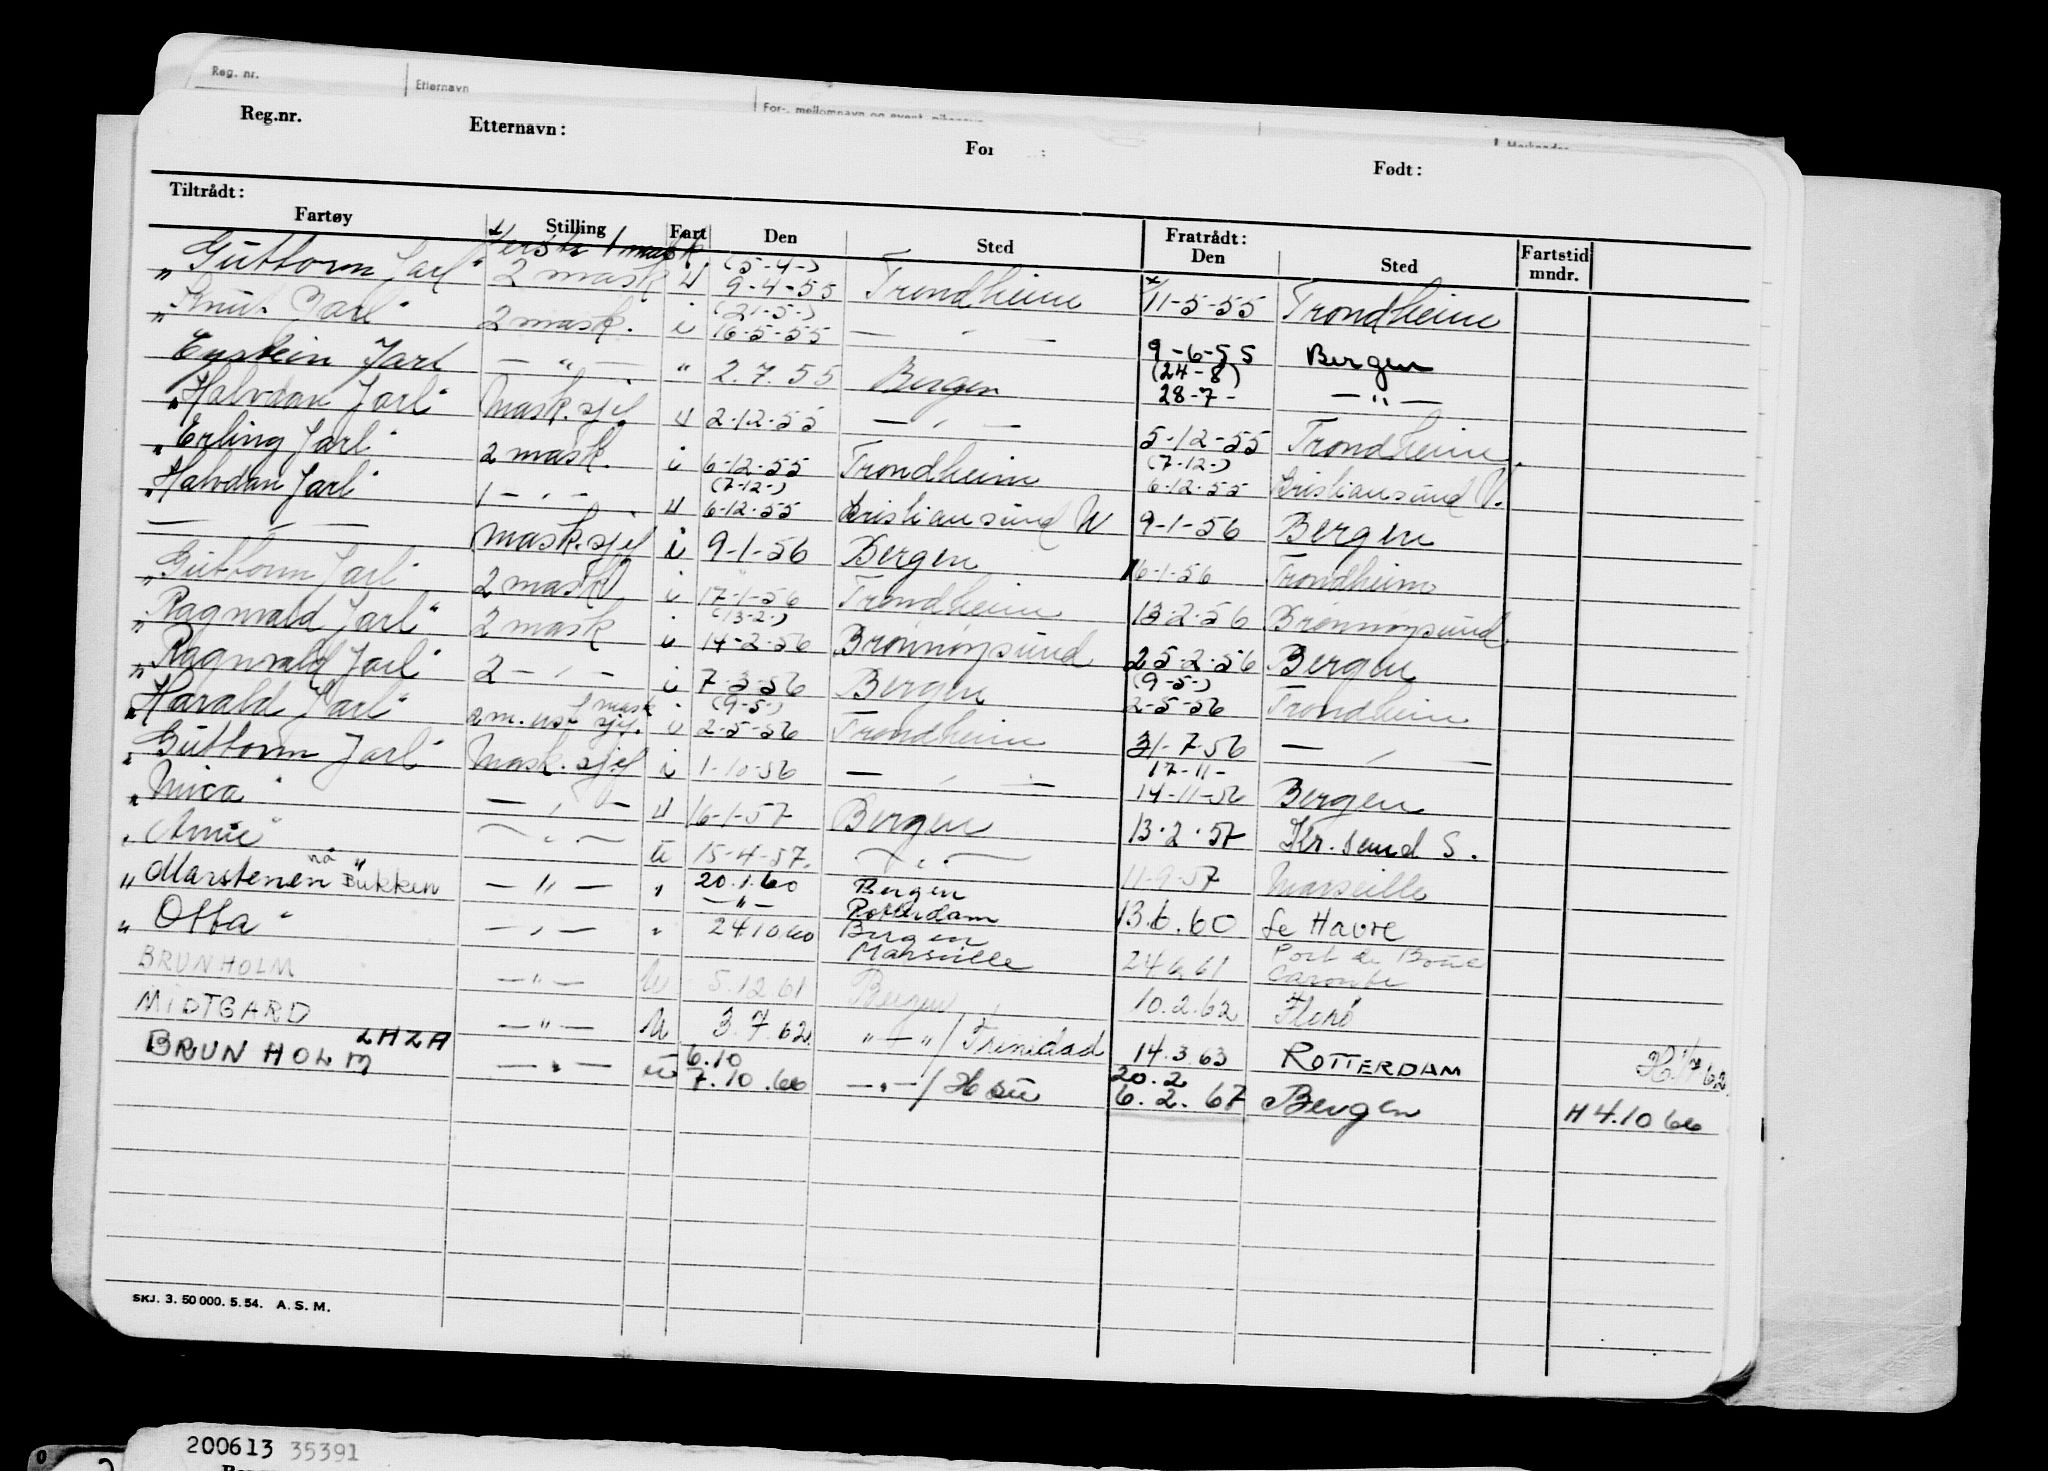 Reg. nr. Etternavn For-, mellomnavn og event. pikenavn
Reg.nr. Etternavn: For : Født:
Tiltrådt: Fratrådt:
Fartøy Stilling Fart Den Sted Den Sted Fartstid mndr.
1 mask (5-4-)
"Guttorm Jarl" 2 mask u 9-4-55 Trondheim 11-5-55 Trondheim
(21-5-)
"Knut Jarl" 2 mask. i 16-5-55 — " — 9-6-55 Bergen
(24-8)
Eystein Jarl — " — " 2.7.55 Bergen 28-7- — " —
"Halvdan Jarl" Mask.sjef u 2-12-55 — " — 5-12-55 Trondheim
(7-12-)
"Erling Jarl" 2 mask. i 6-12-55 Trondheim 6-12-55 Kristiansund N.
(7-12-)
"Halvdan Jarl" 1 — " — u 6-12-55 Kristiansund N 9-1-56 Bergen
— " — Mask.sjef i 9-1-56 Bergen 16-1-56 Trondheim
"Guttorm Jarl" 2 mask i 17-1-56 Trondheim 13-2-56 Brønnøysund
(13-2-)
"Ragnvald Jarl" 2 mask i 14-2-56 Brønnøysund 25-2-56 Bergen
(9-5-)
"Ragnvald Jarl" 2 — " — i 7-3-56 Bergen 2-5-56 Trondheim
1 mask (9-5-)
"Harald Jarl" 2 m. sjf. i 2-5-56 Trondheim 31-7-56 — " —
17-11-
"Guttorm Jarl" Mask.sjef i 1-10-56 — " — 14-11-56 Bergen
"Mica" — " — u 16-1-57 Bergen 13-2-57 Kr.sand S.
" " — " — u 15-4-57. — " — 11-9-57 Marseille
"Marstenen" nå "Bukken — " — " 20.1.60 Bergen
— " — Rotterdam 13.6.60 Le Havre
"Otta" — " — " 24.10.60 Bergen
Marseille 24 6 61 Port de Bouc
Caronte
BRUNHOLM — " — u 5.12.61 Bergen 10.2.62 Florø
MIDTGARD — " — u 3.7.62 " — " / Trinidad 14.3.63 ROTTERDAM
LHZA 6.10 20.2
BRUNHOLM — " — u 7.10.66 — " — / 6.2.67 Bergen H 4.10 66
SKJ. 3. 50 000. 5. 54. A. S. M.
200613 35391